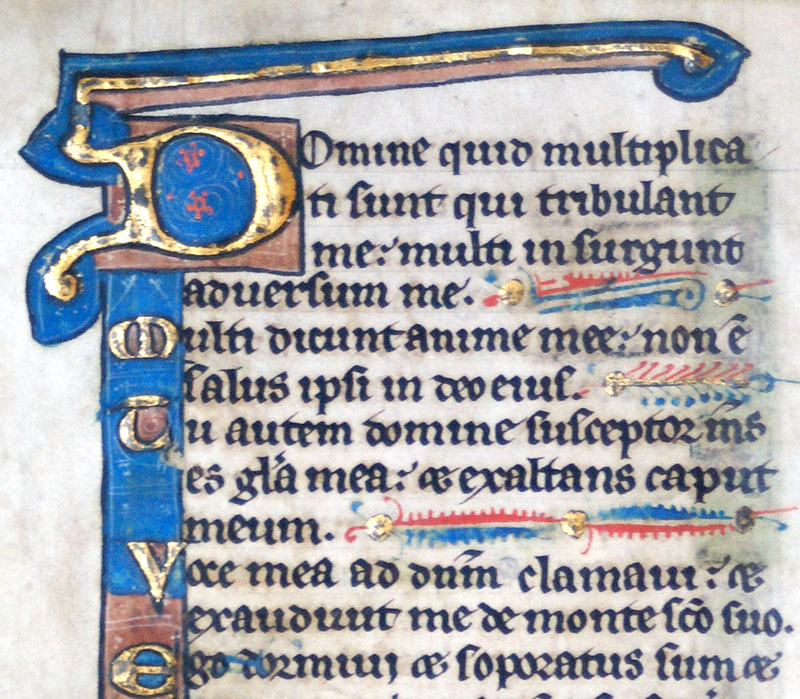 Domine quid multiplica
ti sunt qui tribulant
me: multi insurgunt
adversum me.
Multi dicunt anime mee: non ē
salus ipsi in deo eius.
Tu autem domine susceptor m̅s
es gl̅a mea: & exaltans caput
meum.
Voce mea ad dn̅m clamaui: &
exaudiuit me de monte sc̅o suo.
Ego dormiui & soporatus sum &